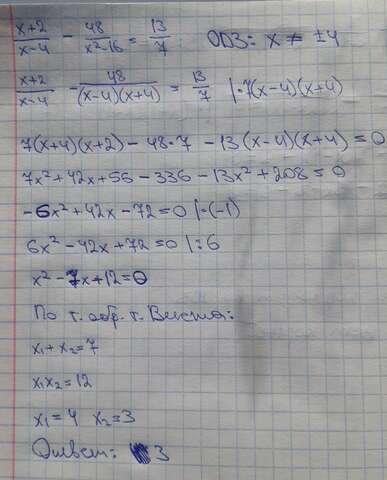 x+2/x-4 - 48/x²-16 = 13/7 ОДЗ: x ≠ ±4
x+2/x-4 - 48/(x-4)(x+4) = 13/7 |·7(x-4)(x+4)
7(x+4)(x+2) - 48·7 - 13(x-4)(x+4) = 0
7x²+42x+56-336-13x²+208=0
-6x²+42x-72=0 |·(-1)
6x²-42x+72=0 |:6
x²-7x+12=0
По т. обр. т. Виета:
x₁+x₂=7
x₁x₂=12
x₁=4 x₂=3
Ответ: 3